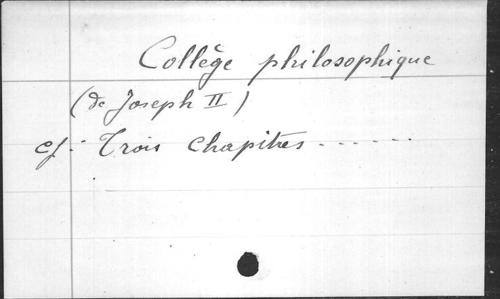 Collège philosophique
(de Joseph II)
cf. : Trois Chapitres . . . . . .